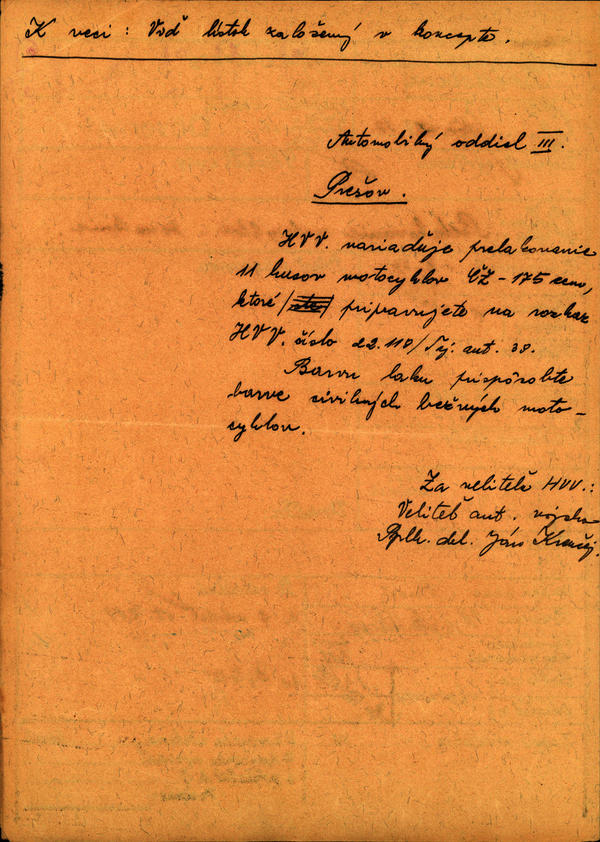 K veci: Vodč lístok založený v koncepte.
Automobilný oddiel III.
Prešov.
HVV. nariaďuje prelakovanie
11 kusov motocyklov ČZ-175 ccm,
ktoré pripravujete na rozkaz
HVV. číslo 22.110/Taj. aut. 39.
Barvu laku prispôsobte
barve civilných bežných moto-
cyklov.
Za veliteľa HVV.:
Veliteľ aut. vojska
Pplk. del. Ján